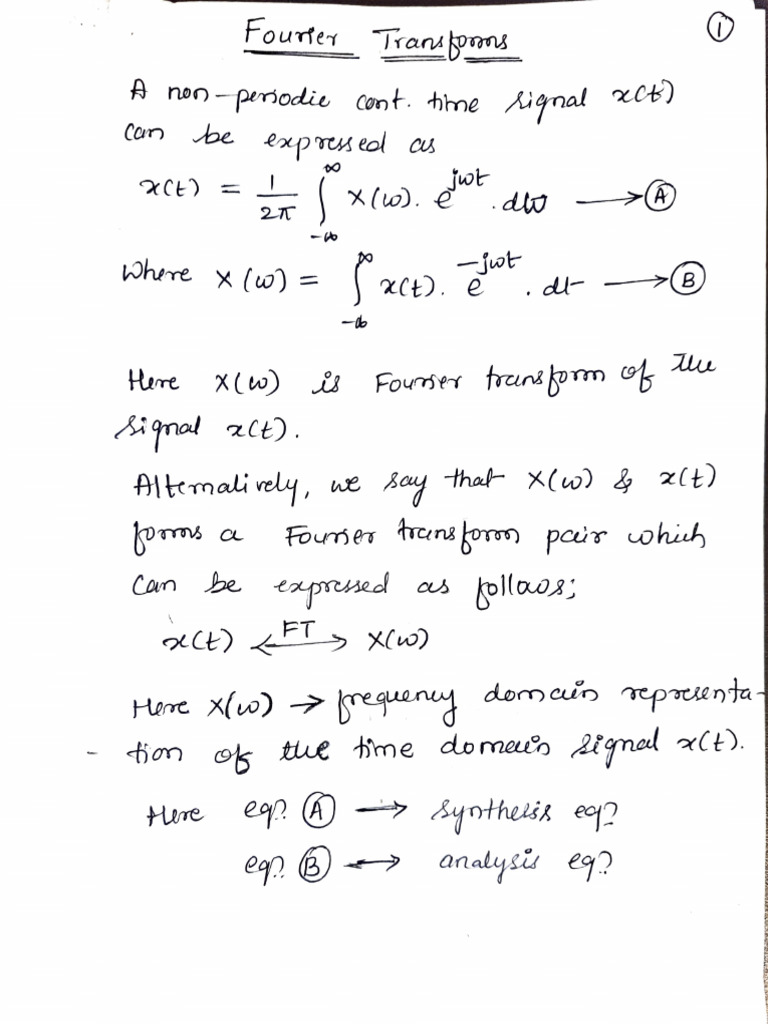 ①
Fourier Transforms
A non-periodic cont. time signal x(t)
can be expressed as
x(t) = 1/2π ∫_{-∞}^{∞} X(ω). e^{jωt} .dω ⟶ Ⓐ
where X(ω) = ∫_{-∞}^{∞} x(t). e^{-jωt} . dt ⟶ Ⓑ
Here X(ω) is Fourier transform of the
signal x(t).
Alternatively, we say that X(ω) & x(t)
forms a Fourier transform pair which
can be expressed as follows;
x(t) ⟷^{FT} X(ω)
Here X(ω) → frequency domain representa-
- tion of the time domain signal x(t).
Here eqⁿ. Ⓐ ⟶ synthesis eqⁿ
eqⁿ. Ⓑ ⟶ analysis eqⁿ